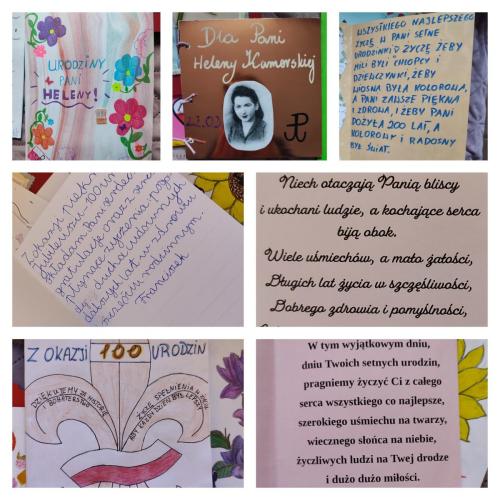 URODZINY
PANI
HELENY!
Dla Pani
Heleny Kamerskiej
22.03
WSZYSTKIEGO NAJLEPSZEGO
ŻYCZĘ W PANI SETNE
URODZINKI ŻYCZĘ ŻEBY
MILI BYLI CHŁOPCY I
DZIEWCZYNKI, ŻEBY
WIOSNA BYŁA KOLOROWA,
A PANI ZAWSZE PIĘKNA
I ZDROWA, I ŻEBY PANI
DOŻYŁA 200 LAT, A
KOLOROWY I RADOSNY
BYŁ ŚWIAT.
Z okazji
Jubileuszu 100
składam Pani serdeczne
gratulacje oraz
płynące życzenia
ducha
dalszych lat w zdrowiu
rodzinnym.
Franciszek
Niech otaczają Panią bliscy
i ukochani ludzie, a kochające serca
biją obok.
Wiele uśmiechów, a mało żałości,
Długich lat życia w szczęśliwości,
Dobrego zdrowia i pomyślności,
Z OKAZJI 100 URODZIN
DZIĘKUJEMY ZA HISTORIĘ
I BOHATERSTWO
ŻYCZĘ SPEŁNIENIA
ABY KAŻDY DZIEŃ BYŁ LEPSZY
W tym wyjątkowym dniu,
dniu Twoich setnych urodzin,
pragniemy życzyć Ci z całego
serca wszystkiego co najlepsze,
szerokiego uśmiechu na twarzy,
wiecznego słońca na niebie,
życzliwych ludzi na Twej drodze
i dużo dużo miłości.